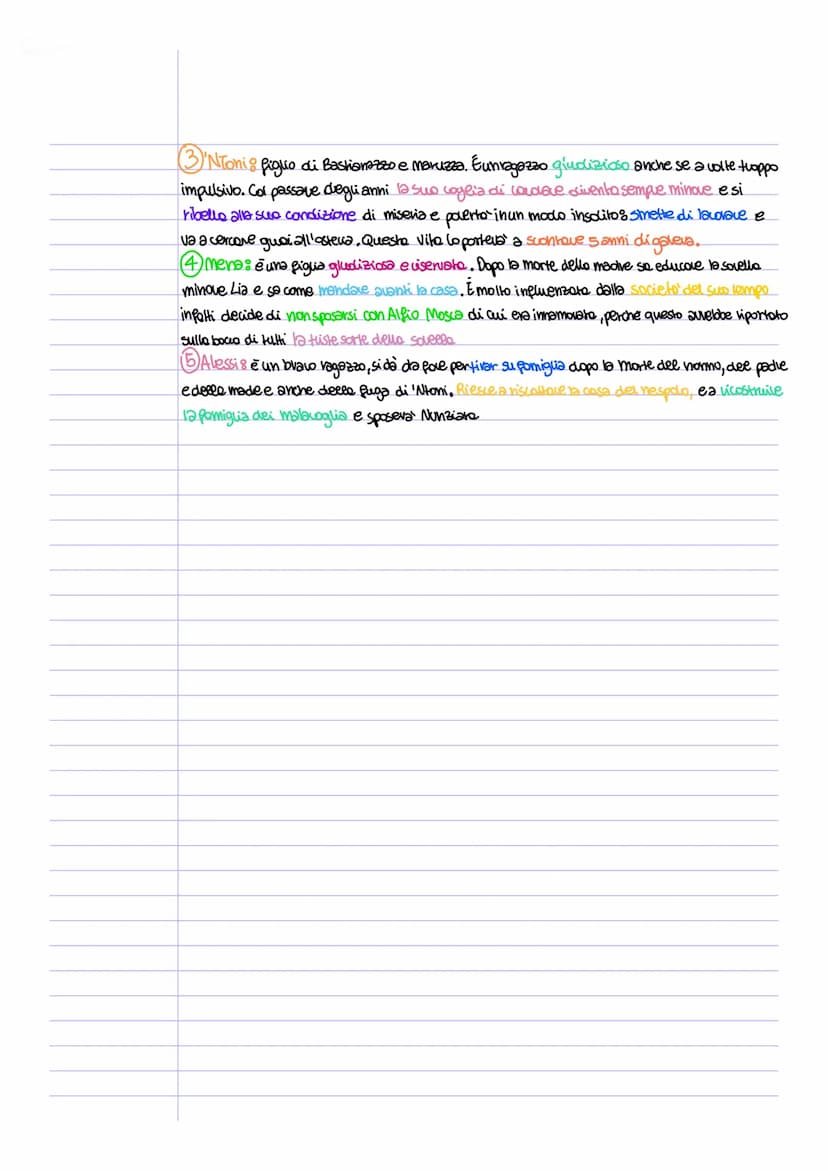 ③'Ntoni: figlio di Bastianazzo e Maruzza. È un ragazzo giudizioso anche se a volte troppo
impulsivo. Col passare degli anni la sua voglia di lavorare diventa sempre minore e si
ribella alla sua condizione di miseria e povertà in un modo insolito: smette di lavorare e
va a cercare guai all'osteria. Questa vita lo porterà a scontare 5 anni di galera.
④Mena: è una figlia giudiziosa e riservata. Dopo la morte della madre sa educare la sorella
minore Lia e sa come mandare avanti la casa. È molto influenzata dalla società del suo tempo
infatti decide di non sposarsi con Alfio Mosca di cui era innamorata, perché questo avrebbe riportato
sulla bocca di tutti la triste sorte della sorella
⑤Alessi: è un bravo ragazzo, si dà da fare per tirar su famiglia dopo la morte del nonno, del padre
e della madre e anche della fuga di 'Ntoni. Riesce a riscattare la casa del nespolo, e a ricostruire
la famiglia dei malavoglia e sposerà Nunziata